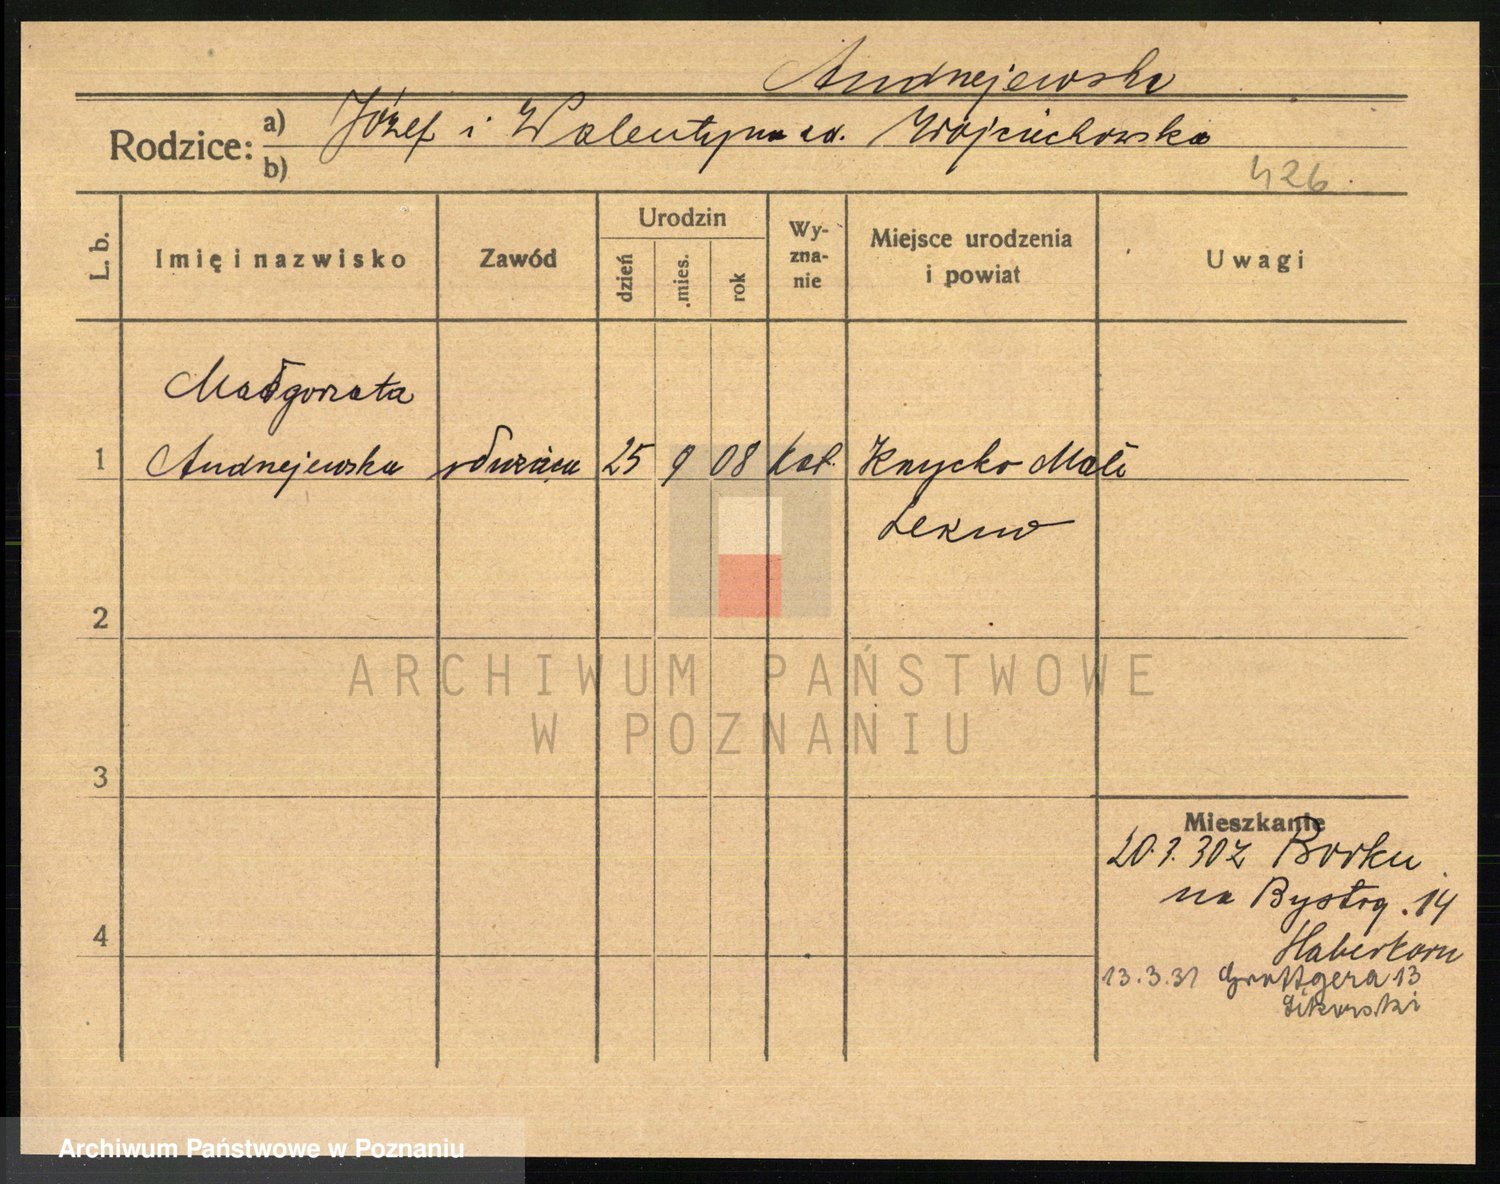 Andrzejewska
Rodzice: a) Józef i Walentyna zd. Wojciechowska
b)
426
L. b.
Imię i nazwisko
Zawód
Urodzin
dzień
mies.
rok
Wy-
zna-
nie
Miejsce urodzenia
i powiat
Uwagi
Małgorzata
1 Andrzejewska służąca 25 9 08 kat.
2
3
4
Mieszkanie
z Borku
na Bystrą 14
Haberkorn
13.3.31 Grottgera 13
Sikorski
ARCHIWUM PAŃSTWOWE
W POZNANIU
Archiwum Państwowe w Poznaniu